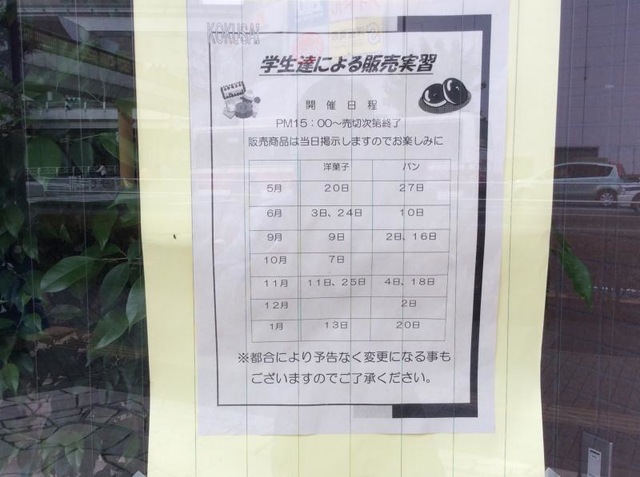 KOKUSAI
学生達による販売実習
開催日程
PM15:00～売切次第終了
販売商品は当日掲示しますのでお楽しみに
洋菓子 パン
5月 20日 27日
6月 3日、24日 10日
9月 9日 2日、16日
10月 7日
11月 11日、25日 4日、18日
12月 2日
1月 13日 20日
※都合により予告なく変更になる事も
ございますのでご了承ください。